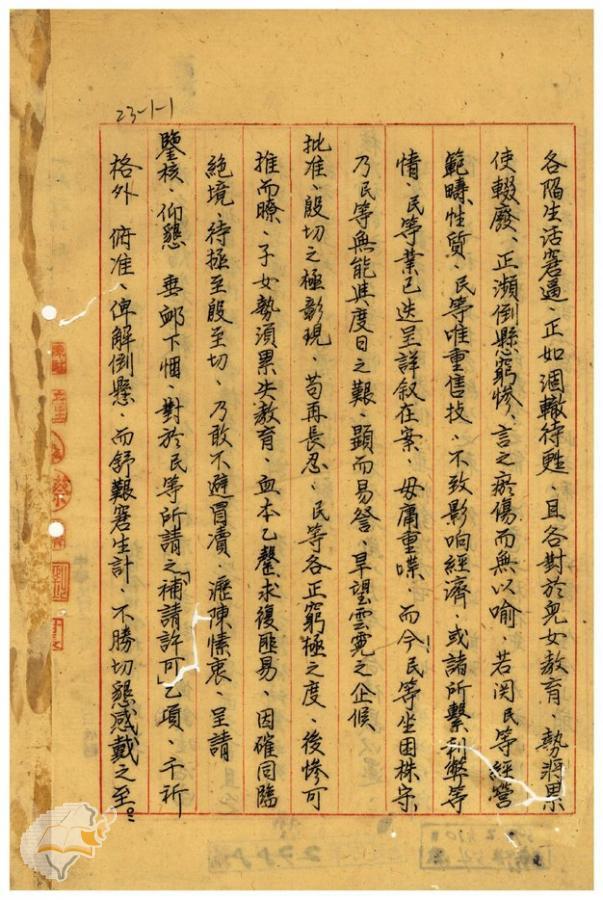 23-1-1
各陷生活窘逼、正如涸轍待甦、且各對於兒女教育、勢將累
使輟廢、正瀕倒懸窮慘、言之瘀傷而無以喻、若関民等經營
範疇性質、民等唯重售技、不致影响經濟、或諸所繫利弊等
情、民等業已迭呈詳叙在案、毋庸重喋、而今民等坐困株守
乃民等無能具度日之艱、顯而易詧、旱望雲霓之企候
批准、殷切之極彰現、苟再長忍、民等各正窮極之度、後慘可
推而瞭、子女勢須累失教育、血本乙罄求復匪易、因確同臨
絕境、待拯至殷至切、乃敢不避冒凟、瀝陳愫衷、呈請
鑒核、仰懇 垂卹下悃、對於民等所請之「補請許可」乙項、千祈
格外 俯准、俾解倒懸、而舒艱窘生計、不勝切懇感戴之至。